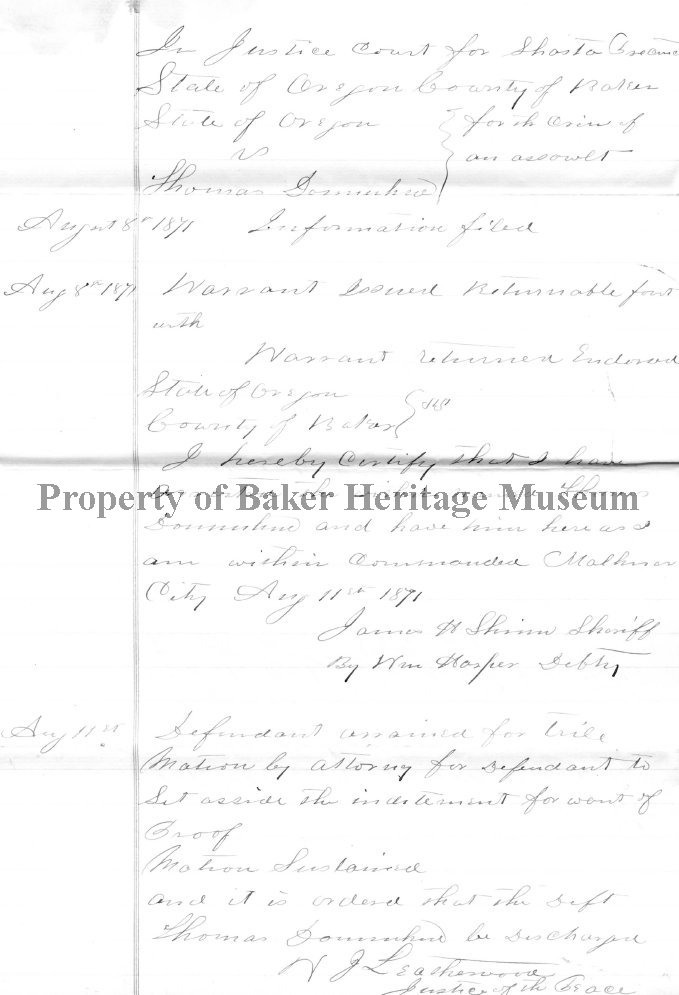 In Justice Court for Shasta Precinct
State of Oregon County of Baker
State of Oregon } for th Crim of
vs an assowlt
Thomas
August 8th 1871 Information filed
Aug 8th 1871 Warrant Issued Returnable fort
with
Warrant returned Endorsed
State of Oregon
County of Baker } ss
I hereby Certify that I have
Property of Baker Heritage Museum
and have him here as I
am within Commanded Malheur
City Aug 11st 1871
James H Shinn Sheriff
By Wm Harper Debty
Aug 11st Defendant arrained for trile
Motion by attorny for Defendant to
Set asside the inditement for want of
Proof
Motion Sustained
and it is ordered that the Deft
Thomas be Discharged
N J Leatherwood
Justice of the Peace